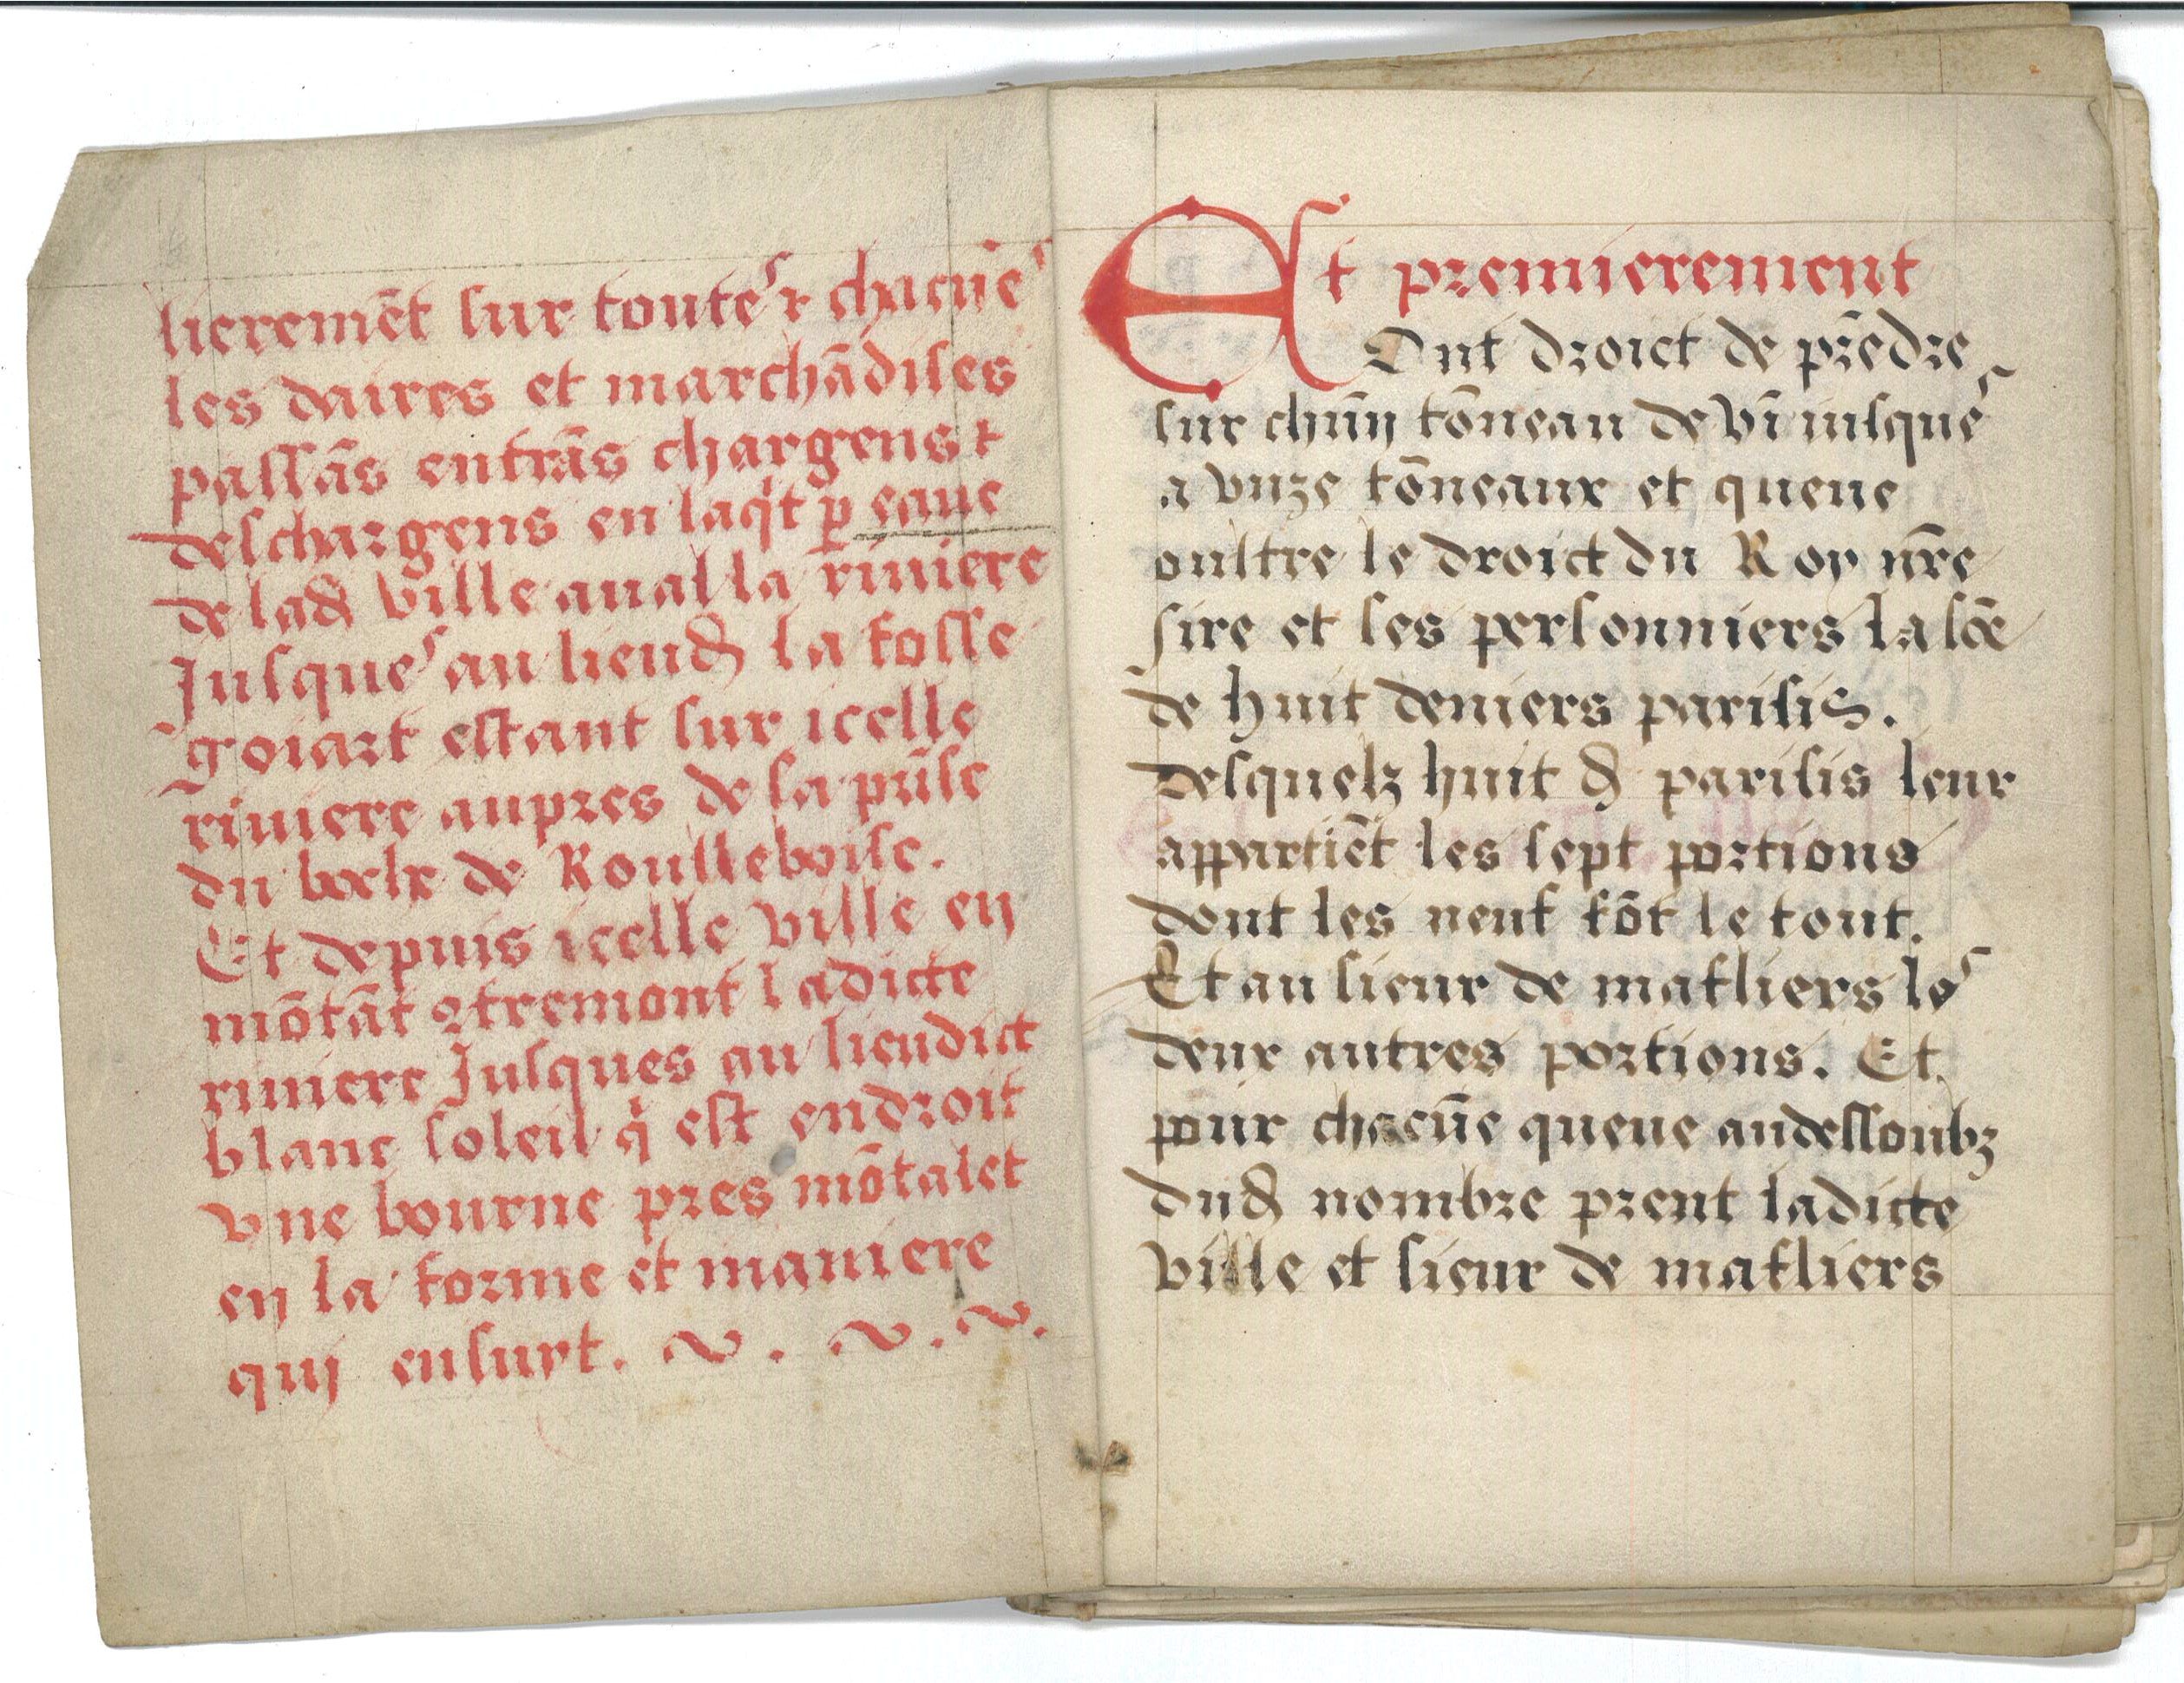 lieremēt sur toutes ⁊ chacūes
les daires et marchādises
passās entrās chargens ⁊
deschargens en laq̄t p̲ eaue
de lad ville aual la riuiere
Jusques au lieud la fosse
goiart estant sur icelle
riuiere aupres de la prīse
du bocle de Roulleboise.
Et depuis icelle ville en
mōtāt ꝯtremont ladicte
riuiere Jusques au lieudict
blanc soleil q̇ est endroit
vne bourne pres mōtalet
en la forme et maniere
quj ensuyt.
Et premierement
Ont droict de prēdre
sur chūn tōneau de vī iusques
a vnze tōneaux et queue
oultre le droict du Roy nr̄e
sire et les personniers la sōe
de huit deniers parisis.
desquelz huit d parisis leur
appartiēt les sept portions
dont les neuf fōt le tout.
Et au sieur de mafliers les
deux autres portions. Et
pour chacūe queue audessoubz
dud nombre prent ladicte
ville et sieur de mafliers